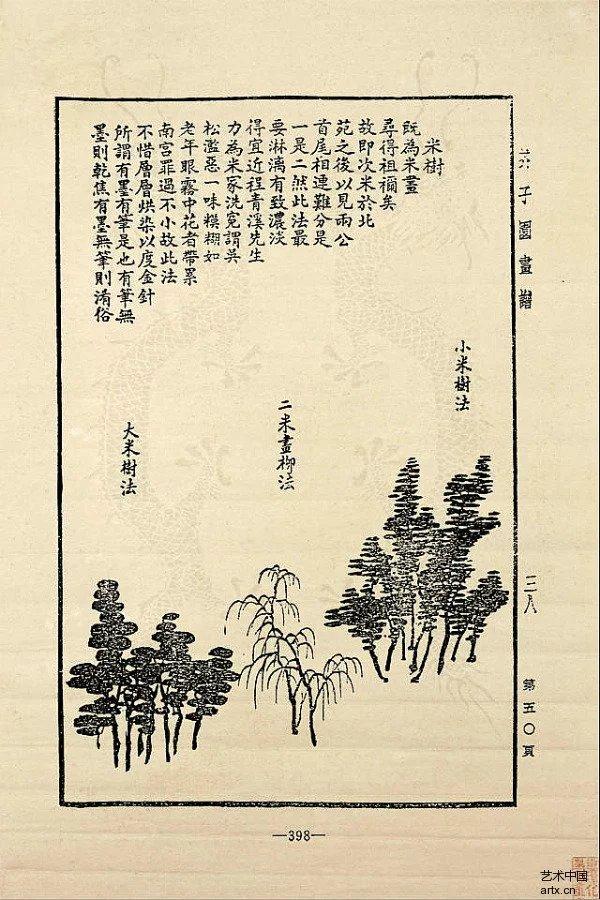 米樹
既為米畫
尋得祖禰矣
故即次米於北
苑之後以見兩公
首尾相連難分是
一是二然此法最
要淋漓有致濃淡
得宜近程青溪先生
力為米家洗冤謂吳
松濫惡一味糢糊如
老年眼霧中花者帶累
南宮罪過不小故此法
不惜層層烘染以度金針
所謂有墨有筆是也有筆無
墨則乾焦有墨無筆則淆俗
小米樹法
二米畫柳法
大米樹法
子園畫譜
三八
第五〇頁
—398—
艺术中国
artx.cn